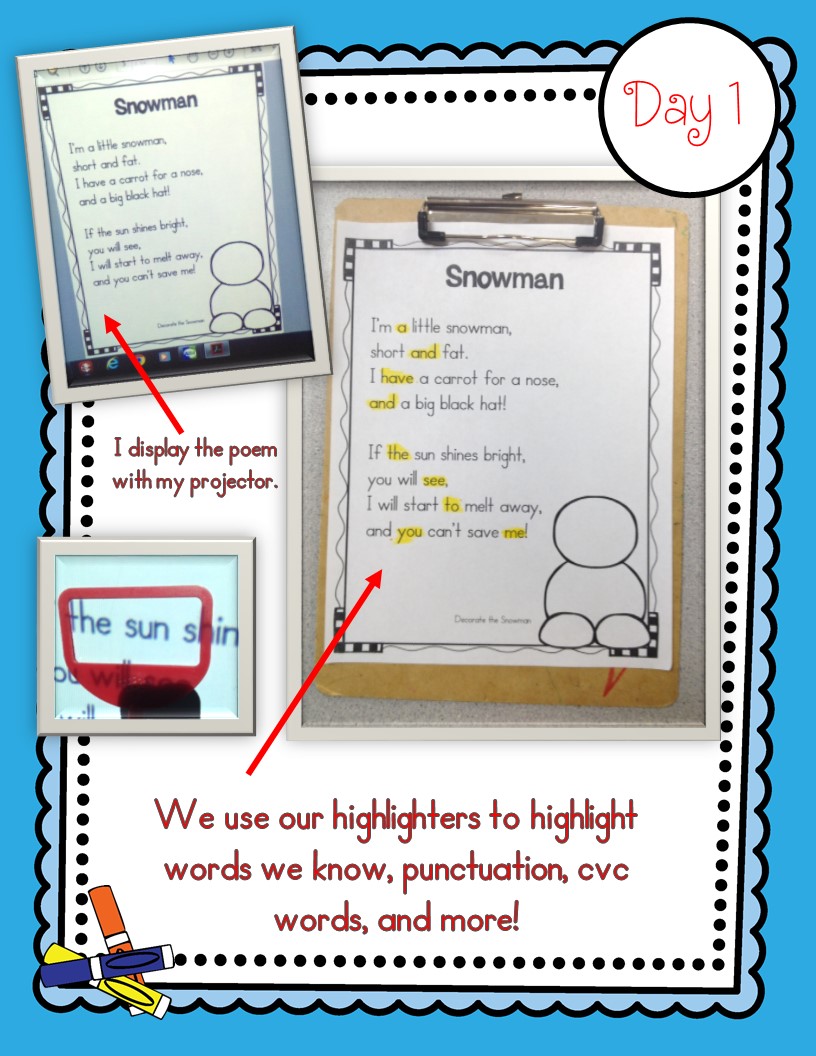 Day 1
Snowman
I'm a little snowman,
short and fat.
I have a carrot for a nose,
and a big black hat!
If the sun shines bright,
you will see,
I will start to melt away,
and you can't save me!
Decorate the Snowman
Snowman
I'm a little snowman,
short and fat.
I have a carrot for a nose,
and a big black hat!
If the sun shines bright,
you will see,
I will start to melt away,
and you can't save me!
Decorate the Snowman
I display the poem
with my projector.
the sun shin
ou will see
will
We use our highlighters to highlight
words we know, punctuation, cvc
words, and more!